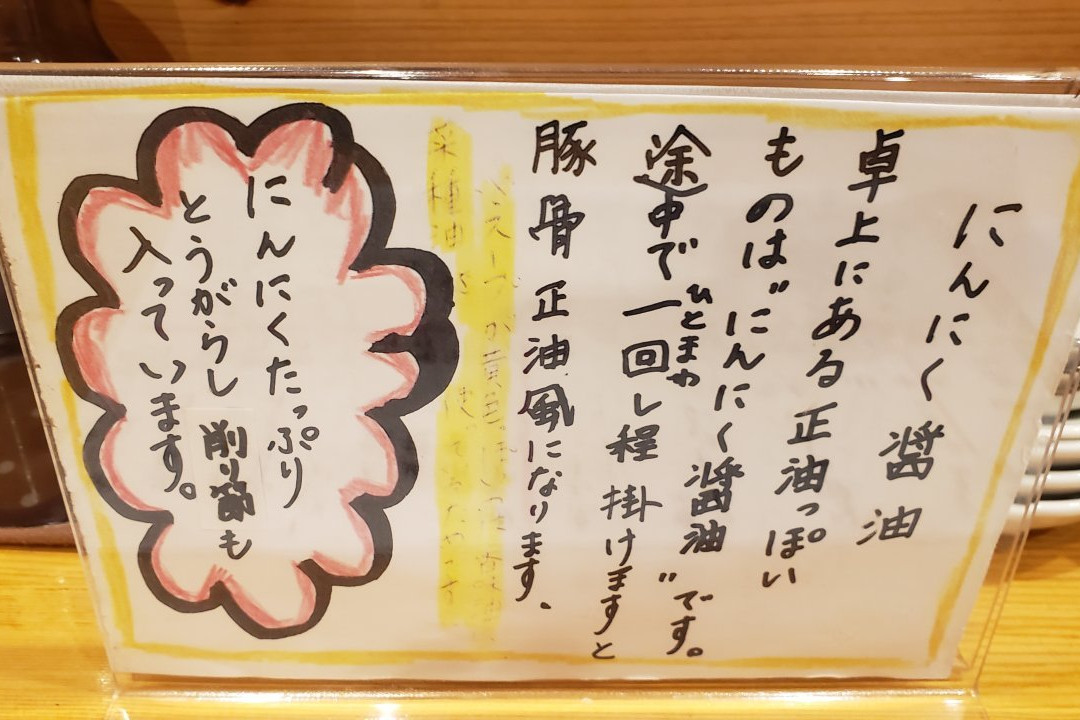 にんにく醤油
卓上にある正油っぽい
ものは"にんにく醤油"です。
ひとまわ
途中で一回し程掛けますと
豚骨正油風になります、
が黄色っぽい
菜種油
にんにくたっぷり
とうがらし削り節も
入っています。